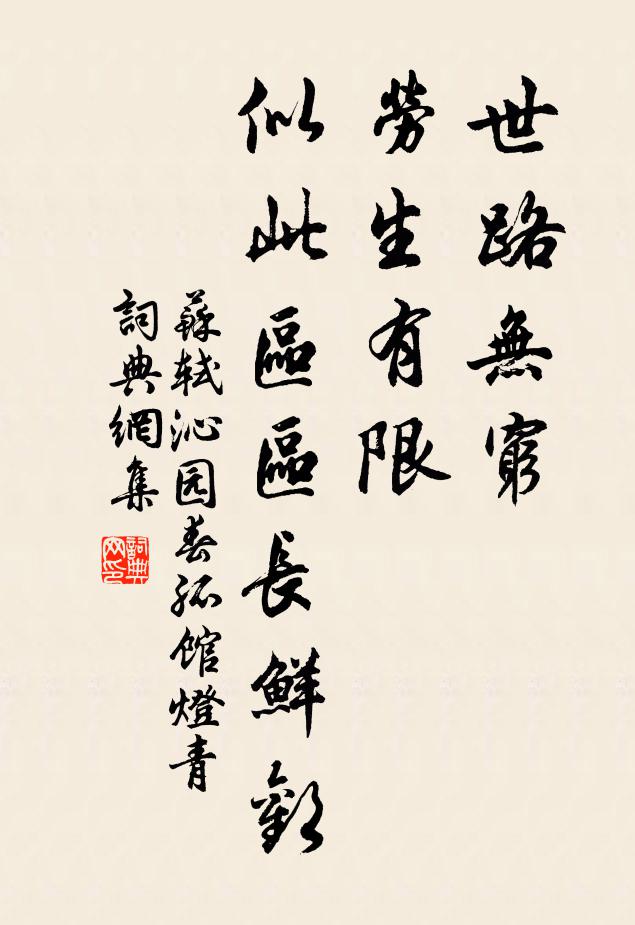 世路無窮
勞生有限
似此區區長鮮歡
蘇軾沁园春孤館燈青
詞典網集
詞典网印